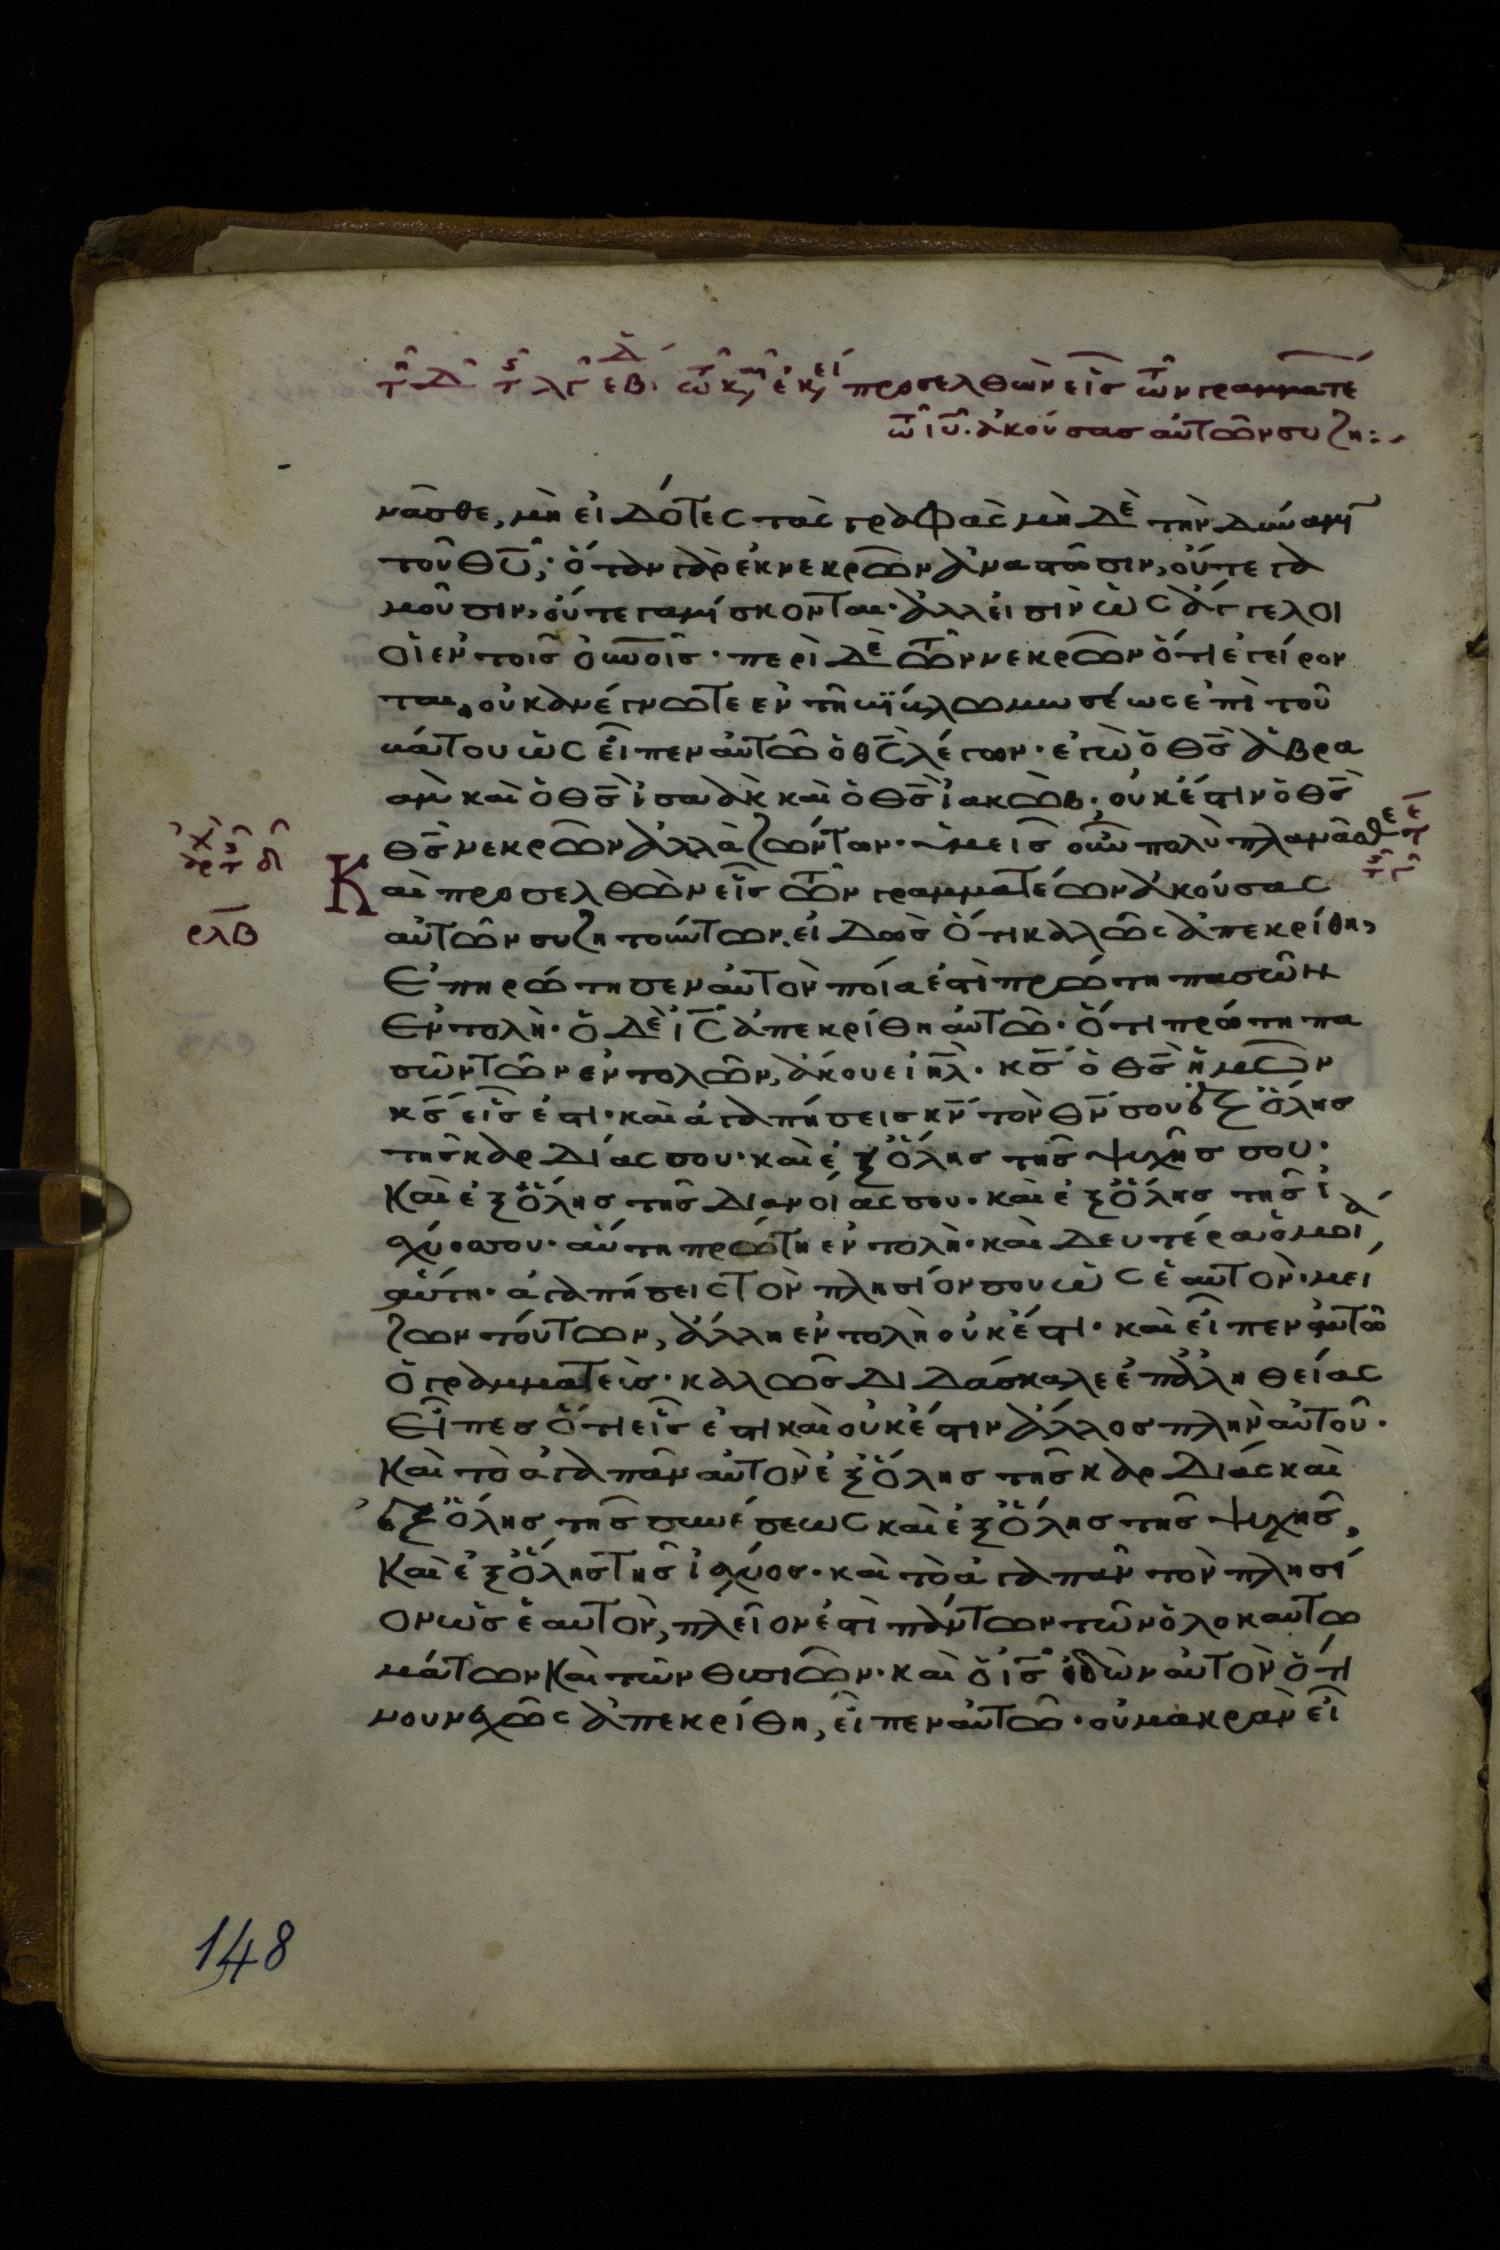 τῇ Δ τ λγ εβδ τῶ κ ἐκεί προσελθὼν εἷς τῶν γραμματέ
τῶ ἰῦ. ἀκούσας αὐτῶν συζη:
νᾶσθε, μὴ εἰδότες τὰς γραφὰς μὴ δὲ τὴν δύναμῖ
τοῦ θῦ· ὅταν γὰρ ἐκ νεκρῶν ἀναστῶσιν, οὔτε γα
μοῦσιν, οὔτε γαμίσκονται· ἀλλ εἰσὶν ὡς ἄγγελοι
οἱ ἐν τοῖς οὐνοῖς· περὶ δὲ τῶν νεκρῶν ὅτι ἐγείρον
ται, οὐκ ἀνέγνωτε ἐν τῇ βίβλω μωσέως ἐπὶ τοῦ
βάτου ὡς εἶπεν αὐτῶ ὁ θς λέγων· ἐγὼ ὁ θς ἀβρα
ὰμ καὶ ὁ θς ἰσαὰκ καὶ ὁ θς ἰακώβ· οὐκ ἔστιν ὁ θς
θς νεκρῶν ἀλλὰ ζώντων· ὑμεῖς οὖν πολὺ πλανᾶσθε
Καὶ προσελθὼν εἷς τῶν γραμματέων ἀκούσας
ρλβ
αὐτῶν συζητούντων, εἰδὼς ὅτι καλῶς ἀπεκρίθη,
Ἐπηρώτησεν αὐτὸν ποία ἐστὶ πρώτη πασῶν
Ἐντολὴ· ὁ δὲ ις ἀπεκρίθη αὐτῶ· ὅτι πρώτη πα
σῶν τῶν ἐντολῶν, ἄκουε ιηλ· κς ὁ θς ἡμῶν
κς εἷς ἐστι· καὶ ἀγαπήσεις κν τὸν θν σου ἐξ ὅλης
τῆς καρδίας σου· καὶ ἐξ ὅλης τῆς ψυχῆς σου·
Καὶ ἐξ ὅλης τῆς διανοίας σου· καὶ ἐξ ὅλης τῆς ἰ
σχύος σου· αὕτη πρώτη ἐντολὴ· καὶ δευτέρα ὁμοία
αὕτη· ἀγαπήσεις τὸν πλησίον σου ὡς ἑαυτόν· μεί
ζων τούτων, ἄλλη ἐντολὴ οὐκ ἔστι· καὶ εἶπεν αὐτῶ
ὁ γραμματεὺς· καλῶς διδάσκαλε ἐπ ἀληθείας
Εἶπες ὅτι εἷς ἐστι καὶ οὐκ ἔστιν ἄλλος πλὴν αὐτοῦ·
Καὶ τὸ ἀγαπᾶν αὐτὸν ἐξ ὅλης τῆς καρδίας καὶ
ἐξ ὅλης τῆς συνέσεως καὶ ἐξ ὅλης τῆς ψυχῆς,
Καὶ ἐξ ὅλης τῆς ἰσχύος· καὶ τὸ ἀγαπᾶν τὸν πλησί
ον ὡς ἑαυτὸν, πλεῖον ἐστὶ πάντων τῶν ὁλοκαυτω
μάτων Καὶ τῶν θυσιῶν· καὶ ὁ ις ἰδὼν αὐτὸν ὅτι
νουνεχῶς ἀπεκρίθη, εἶπεν αὐτῶ· οὐ μακρὰν εἶ
148